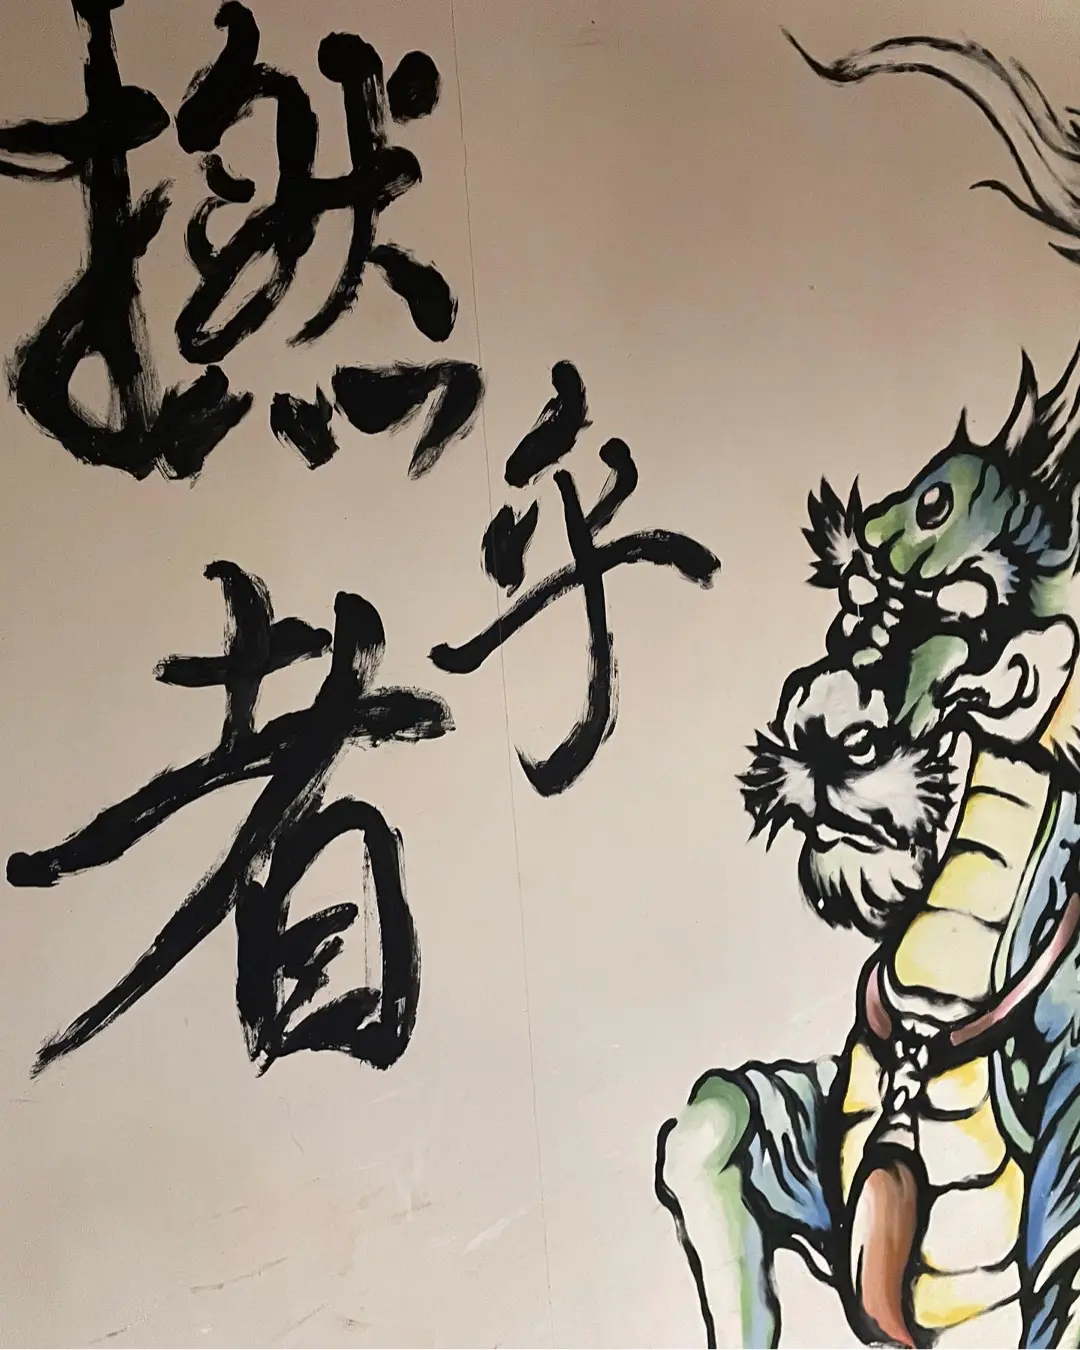 撚乎者